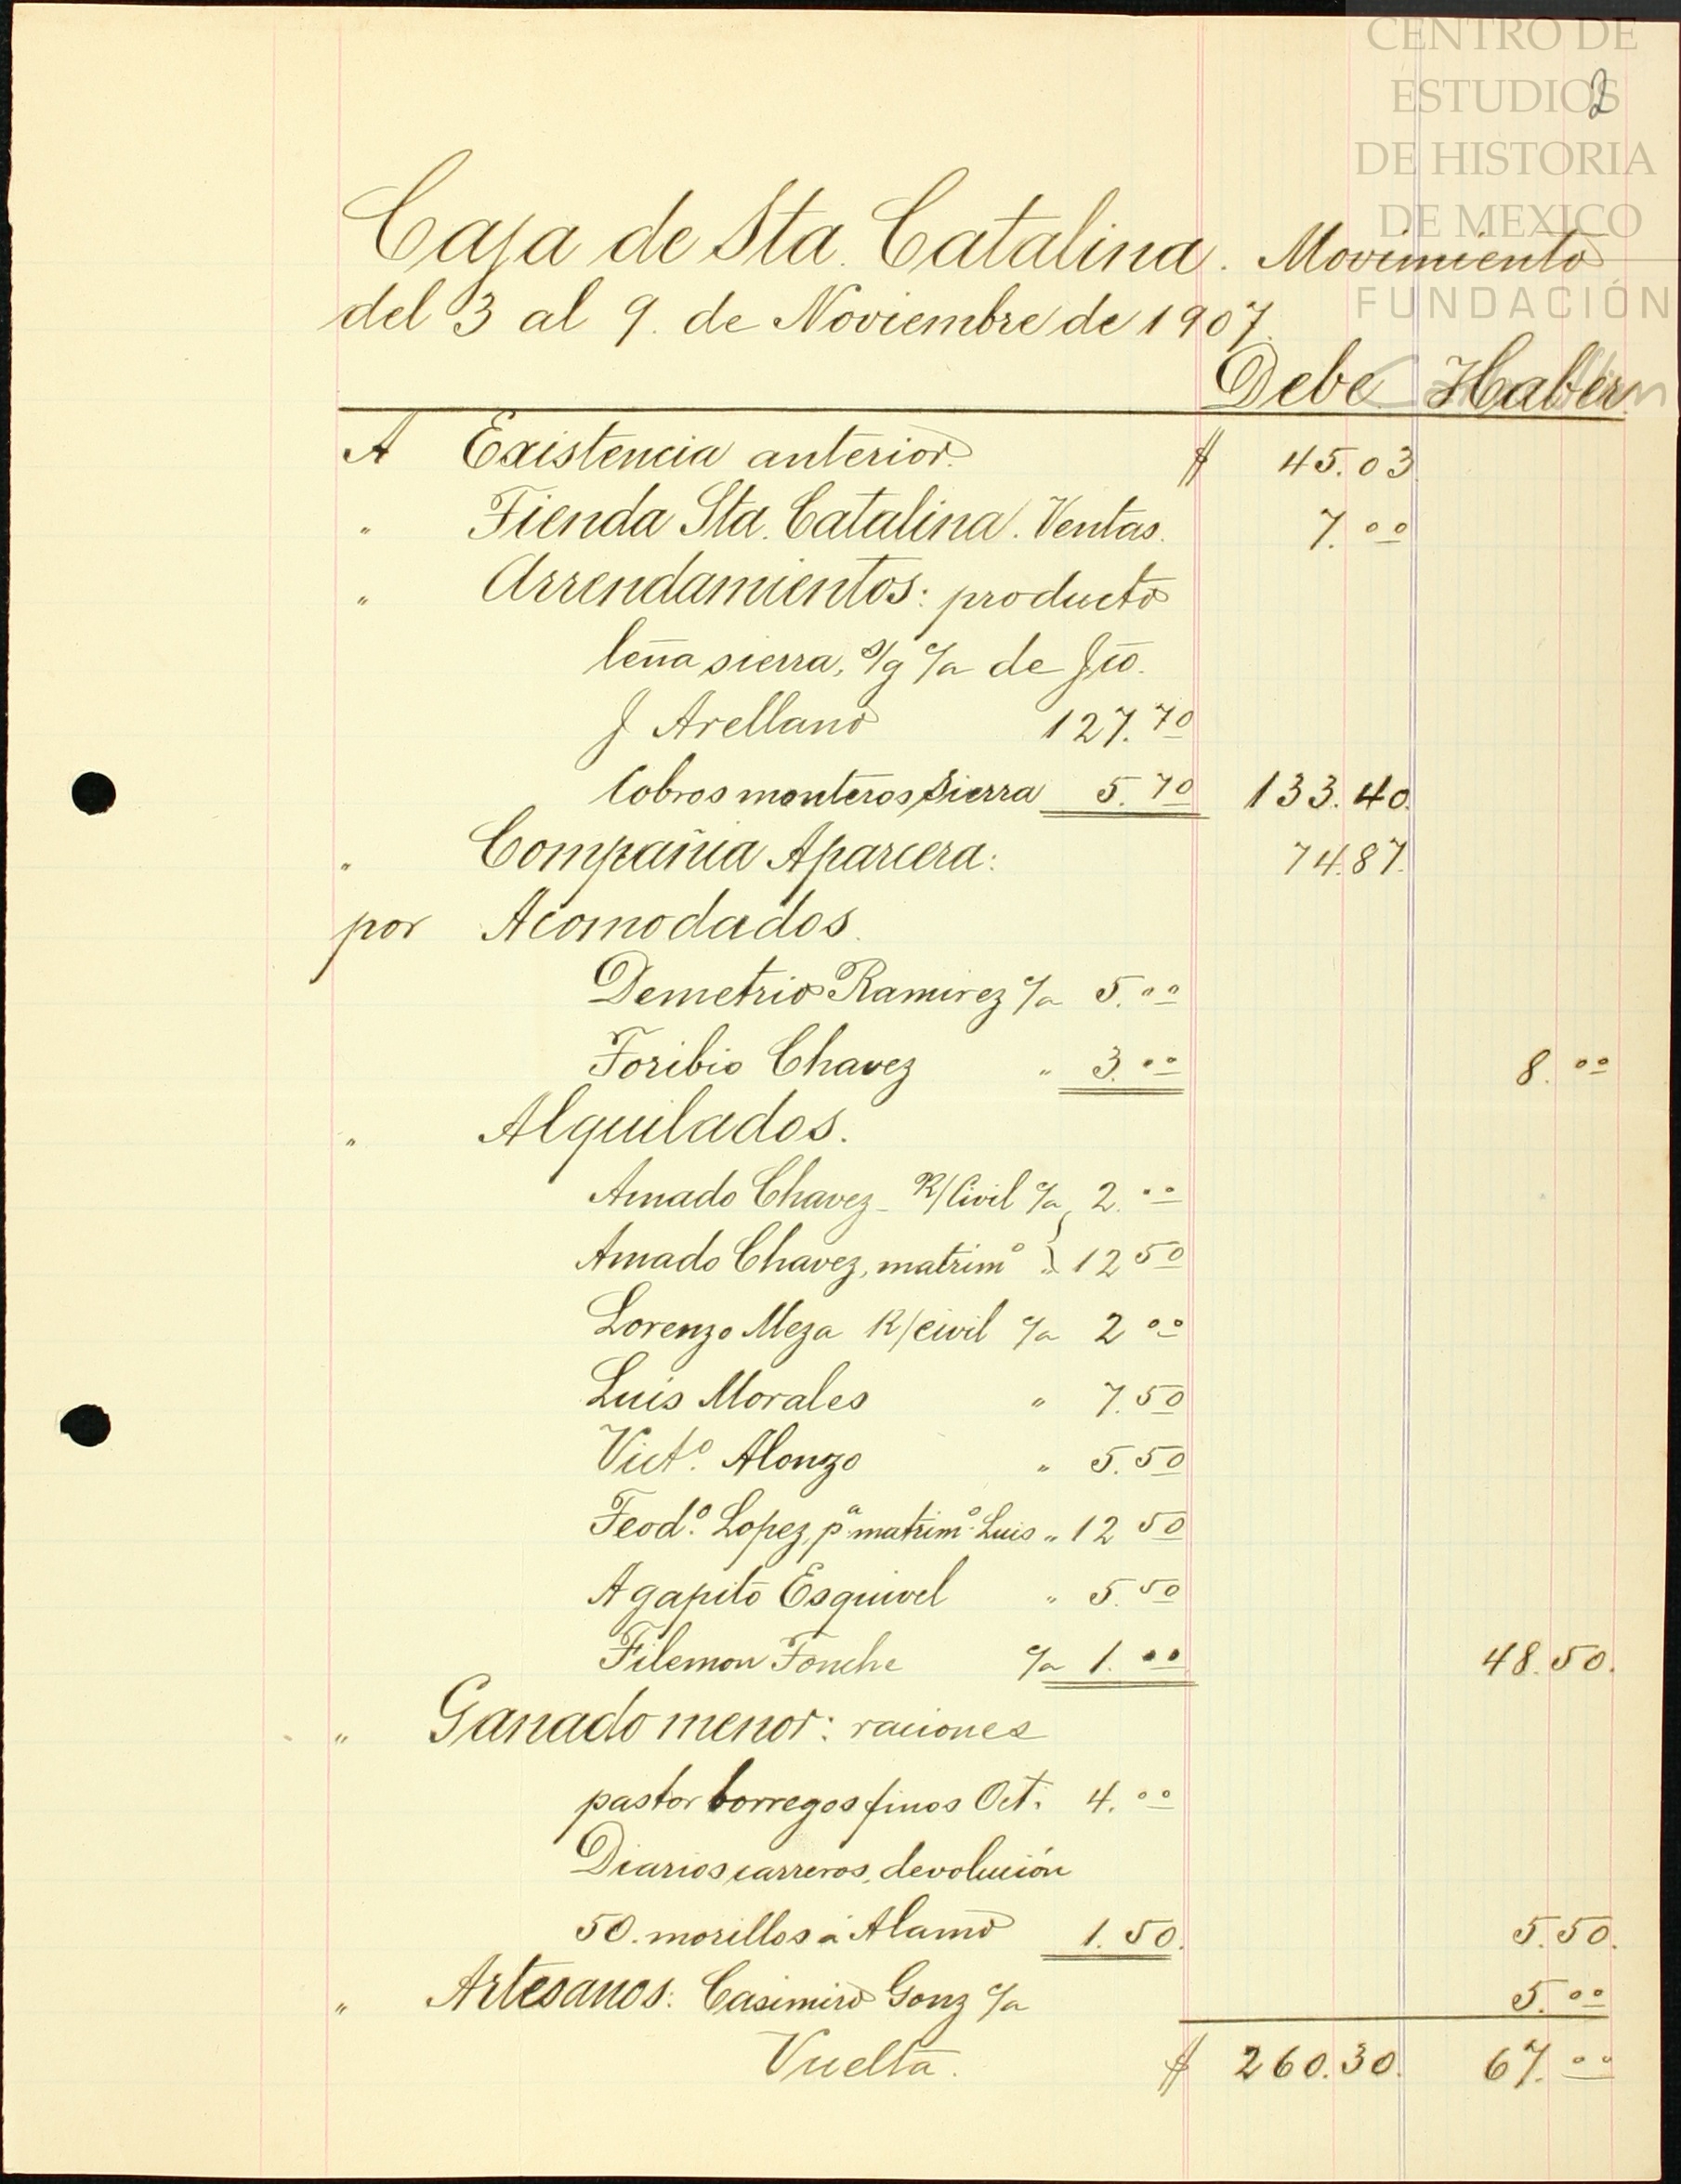 CENTRO DE
ESTUDIOS
DE HISTORIA
DE MEXICO
FUNDACIÓN
2
Caja de Sta. Catalina. Movimiento
del 3 al 9. de Noviembre de 1907.
Debe Haber
A Existencia anterior. $ 45.03
" Tienda Sta. Catalina. Ventas. 7.00
" Arrendamientos: producto
leña sierra, o/g c/a de Jto.
J Arellano 127.70
Cobros monteros sierra 5.70 133.40.
" Compañia Aparcera: 74.87.
por Acomodados.
Demetrio Ramirez c/a 5.00
Toribio Chavez " 3.00 8.00
" Alquilados.
Amado Chavez - R/Civil c/a 2.00
Amado Chavez, matrimo } " 12 50
Lorenzo Meza R/civil c/a 2 00
Luis Morales " 7.50
Victo. Alonzo " 5.50
Teodo. Lopez, pa. matrimo. Luis " 12 50
Agapito Esquivel " 5.50
Filemon Fonche c/a 1.00 48.50.
" Ganado menor: raciones
pastor borregos finos Oct. 4.00
Diarios carreros, devolución
50. morillos á Alamo 1.50. 5.50.
" Artesanos: Casimiro Gonz c/a 5.00
Vuelta. $ 260.30. 67.00